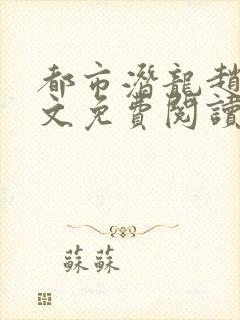 都市潛龍趙
文免費閱讀
蘇蘇